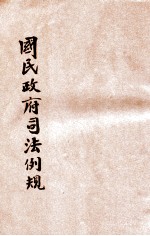 國民政府司法例規